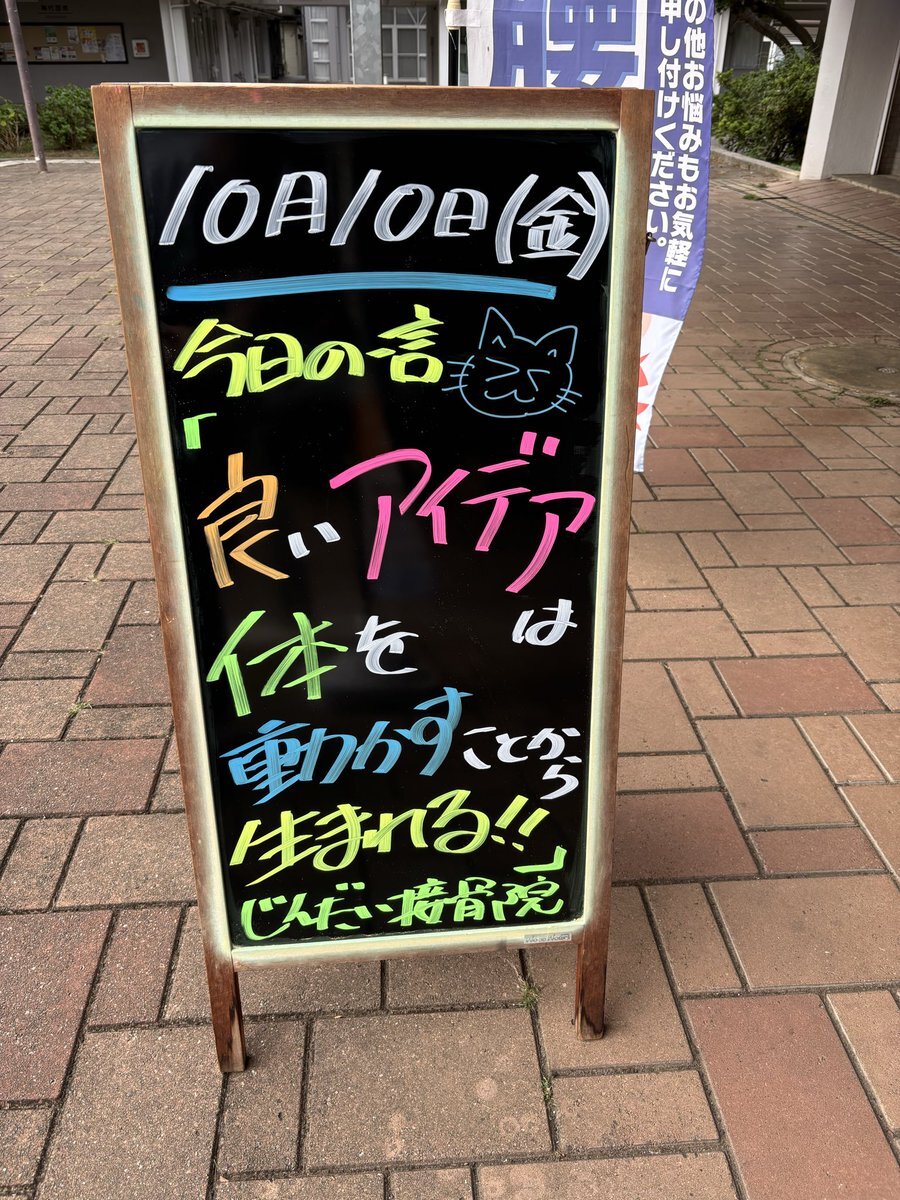 10月10日(金)
今日の一言
「
良いアイデア
は
体を
動かすことから
生まれる!!
」
じんだい接骨院
の他お悩みもお気軽に
申し付けください。
腰